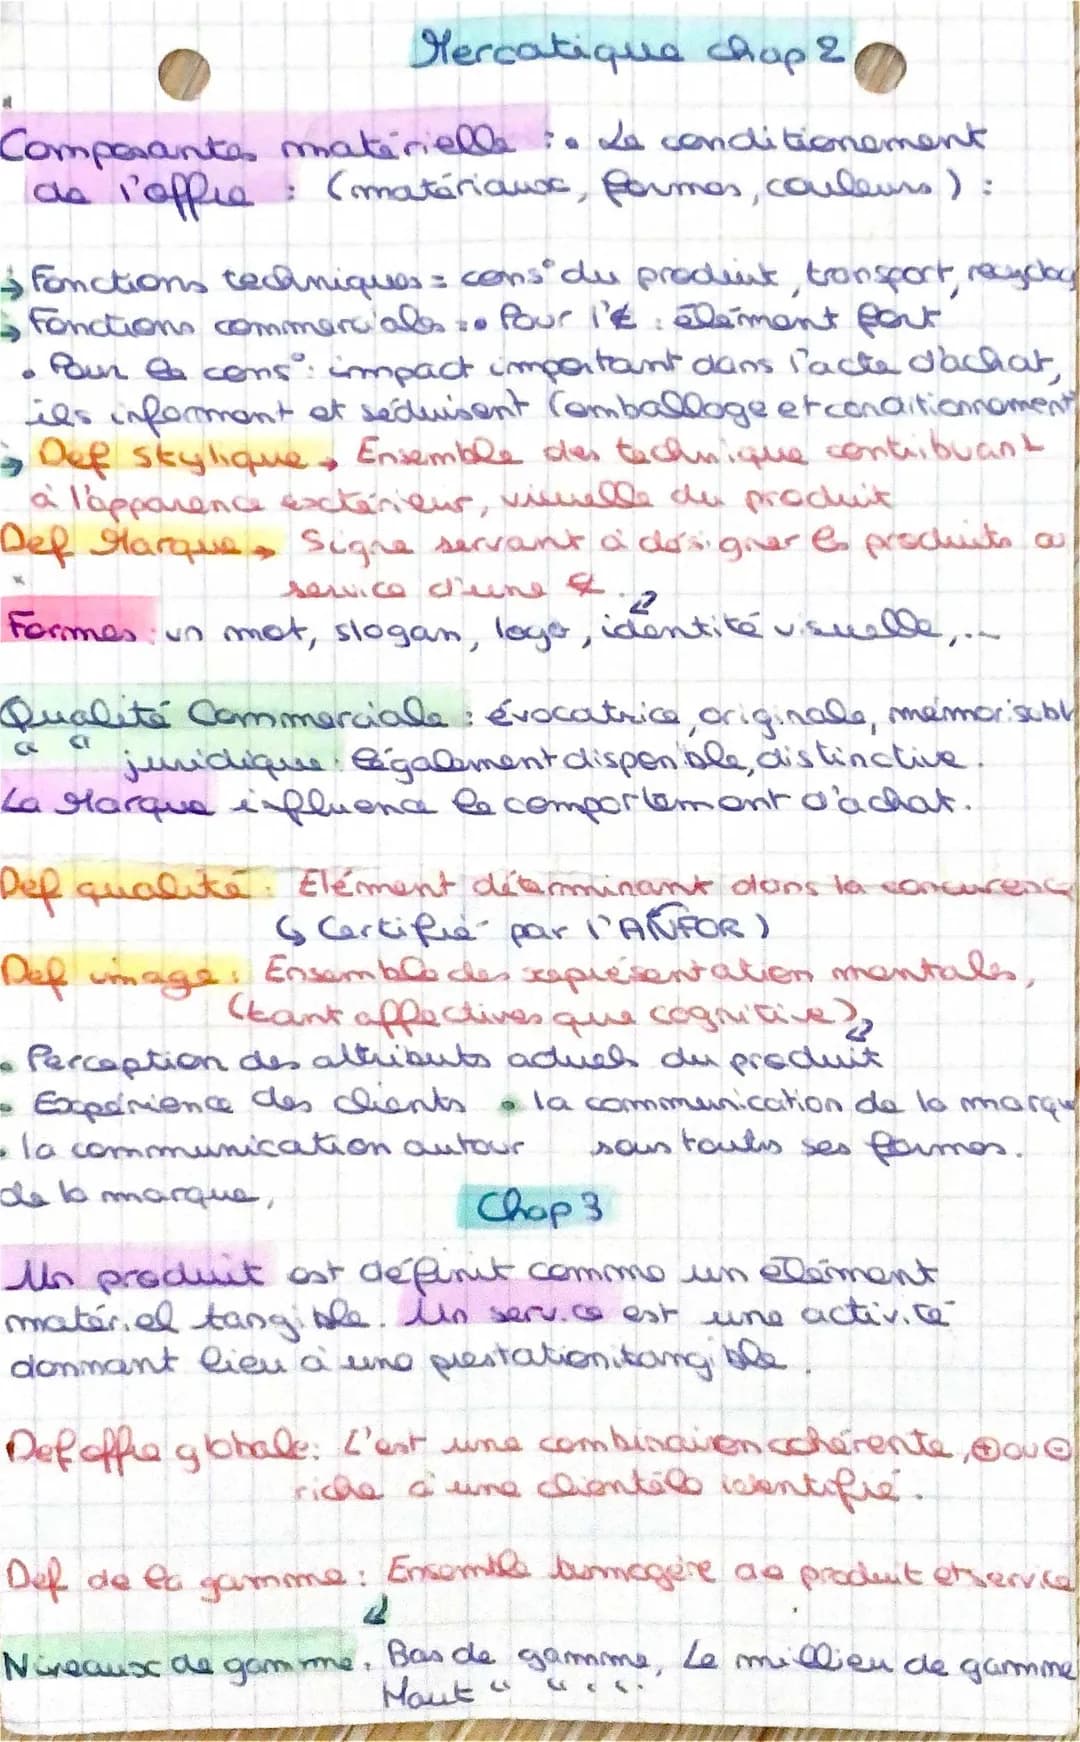 Mercatique chap 2
Composantes matérielle : • Le conditionement
de l'offre : (matériaux, formes, couleurs) :
→ Fonctions techniques = cons° du produit, transport, recyclag
→ Fonctions commerciales : • Pour l'€ : élément fort
• Pour le cons° : impact important dans l'acte d'achat,
ils informent et séduisent (emballage et conditionnement
→ Def stylique → Ensemble des technique contribuant
à l'apparence extérieur, visuelle du produit
Def Marque → Signe servant à désigner les produits ou
service d'une €.
Formes : un mot, slogan, logo, identité visuelle,...
Qualité Commerciale : évocatrice, originale, mémorisabl
" " juridique : légalement disponible, distinctive.
La Marque influence le comportement d'achat.
Def qualité : Elément déterminant dans la concurenc
↳ Certifié par l'ANFOR)
Def image : Ensemble des représentation mentales,
(tant affectives que cognitive)
• Perception des attributs actuels du produit
• Expérience des clients • la communication de la marqu
• la communication autour sous toutes ses formes.
de la marque,
Chap 3
Un produit est définit comme un élément
matériel tangible. Un service est une activité
donnant lieu à une prestation itangible.
Def offre globale : C'est une combinaison cohérente, ⊕ ou ⊖
riche à une clientèle identifié.
Def de la gamme : Ensemble homogère de produit et service
Niveaux de gamme : Bas de gamme, Le millieu de gamme
Haut " " ...